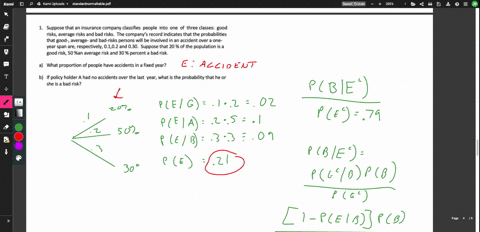 Kami Uploads
standardnormaltable.pdf
Saved to Kami
1. Suppose that an insurance company classifies people into one of three classes: good
risks, average risks and bad risks. The company's record indicates that the probabilities
that good-, average- and bad-risks persons will be involved in an accident over a one-
year span are, respectively, 0.1,0.2 and 0.30. Suppose that 20 % of the population is a
good risk, 50 %an average risk and 30 % percent a bad risk.
a) What proportion of people have accidents in a fixed year?
E: ACCIDENT
b) If policy holder A had no accidents over the last year, what is the probability that he or
she is a bad risk?
.1 20%
.2 50%
.3 30%
P(E/G) = .1 · .2 = .02
P(E/A) = .2 · .5 = .1
P(E/B) = .3 · .3 = .09
P(E) = .21
P(B|E^c)
P(E^c) = .79
P(B|E^c) =
P(G^c/B) P(B)
P(G^c)
[1 - P(E|B)] P(B)